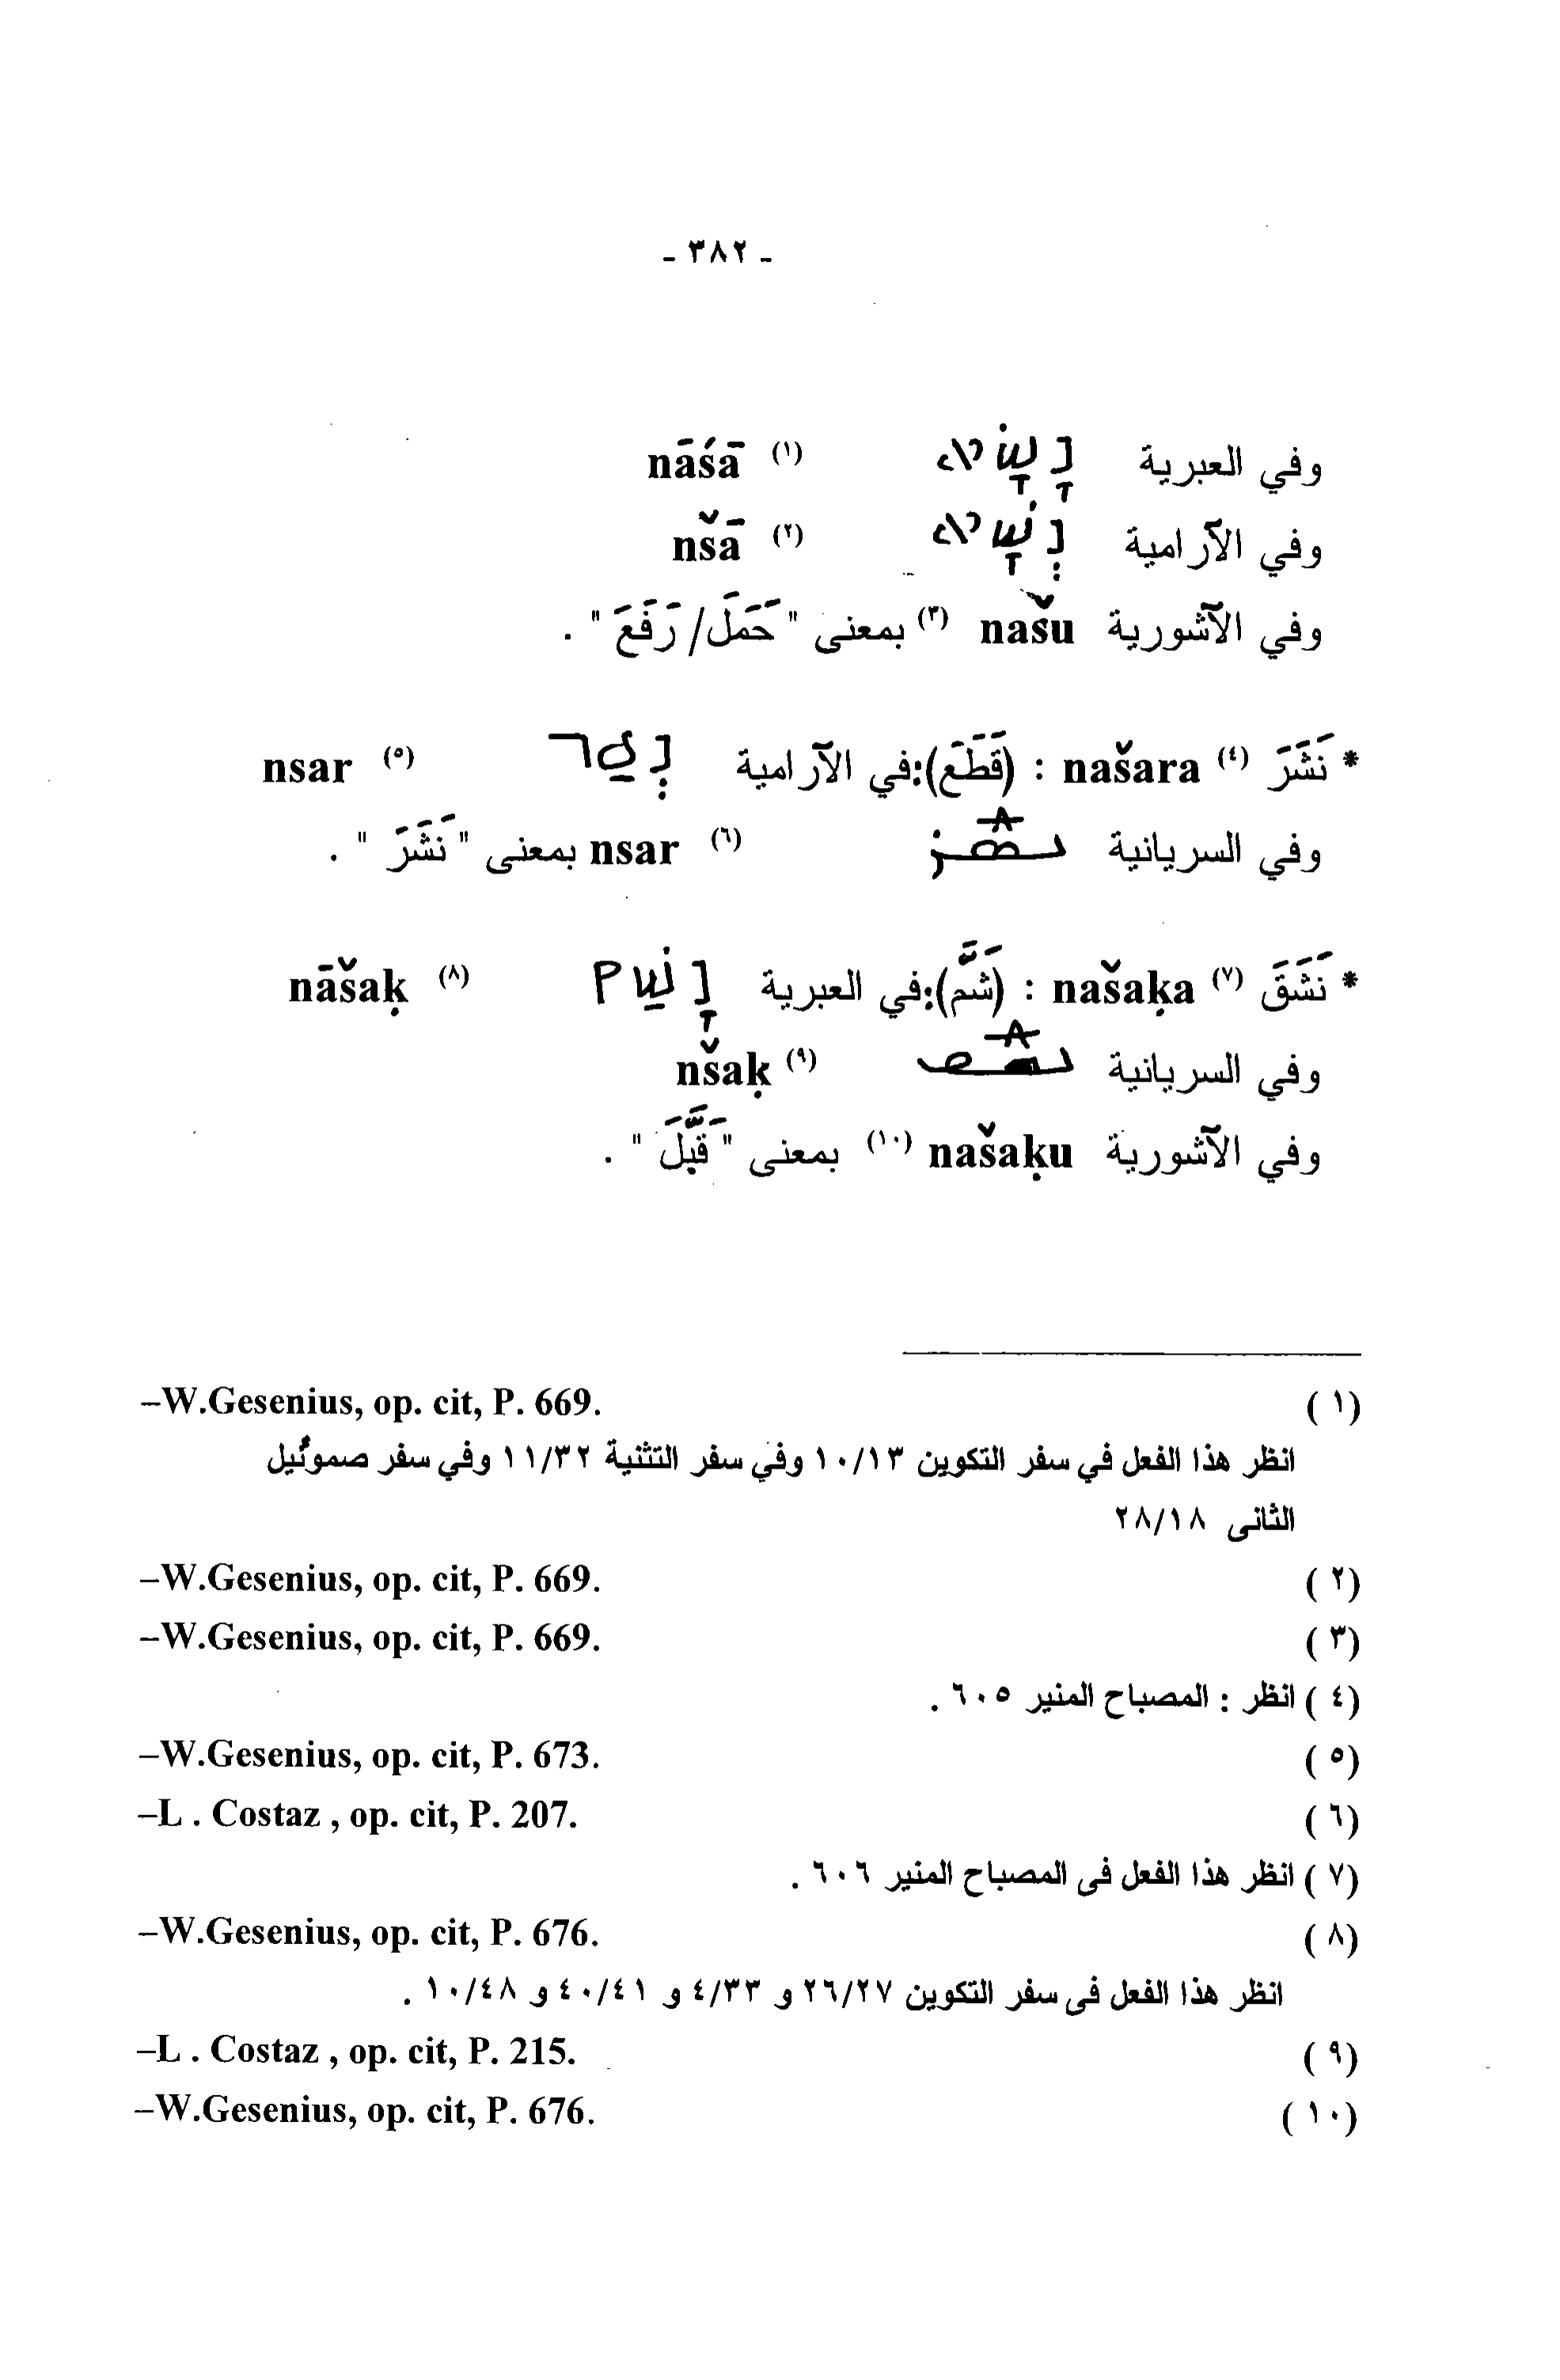 - ٣٨٢ -
وفي العبرية נָשָׂא (١) nāśā
وفي الآرامية נְשָׁא (٢) nšā
وفي الآشورية našu (٣) بمعنى " حَمَلَ/ رَفَعَ " .
* نَشَرَ (٤) našara : (قَطَعَ):في الآرامية נְסַר (٥) nsar
وفي السريانية ܢܣܰܪ (٦) nsar بمعنى " نَشَرَ " .
* نَشَقَ (٧) našaḳa : (شَمَّ):في العبرية נָשַׁק (٨) nāšaḳ
وفي السريانية ܢܫܰܩ (٩) nšaḳ
وفي الآشورية našaḳu (١٠) بمعنى " قَبَّلَ " .
(١) –W.Gesenius, op. cit, P. 669.
انظر هذا الفعل في سفر التكوين ١٠/١٣ وفي سفر التثنية ١١/٣٢ وفي سفر صموئيل
الثانى ٢٨/١٨
(٢) –W.Gesenius, op. cit, P. 669.
(٣) –W.Gesenius, op. cit, P. 669.
(٤) انظر : المصباح المنير ٦٠٥ .
(٥) –W.Gesenius, op. cit, P. 673.
(٦) –L . Costaz , op. cit, P. 207.
(٧) انظر هذا الفعل فى المصباح المنير ٦٠٦ .
(٨) –W.Gesenius, op. cit, P. 676.
انظر هذا الفعل فى سفر التكوين ٢٦/٢٧ و ٤/٣٣ و ٤٠/٤١ و ١٠/٤٨ .
(٩) –L . Costaz , op. cit, P. 215.
(١٠) –W.Gesenius, op. cit, P. 676.